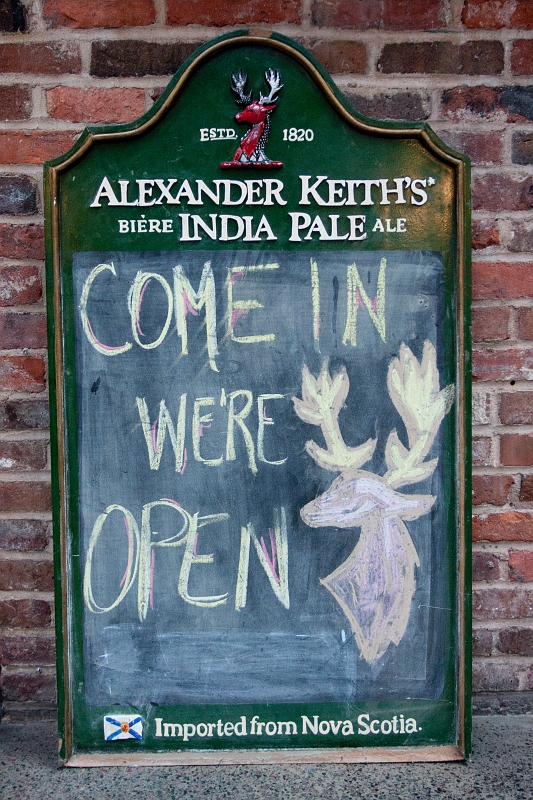 ESTD. 1820
ALEXANDER KEITH'S*
BIÈRE INDIA PALE ALE
COME IN
WE'RE
OPEN
Imported from Nova Scotia.